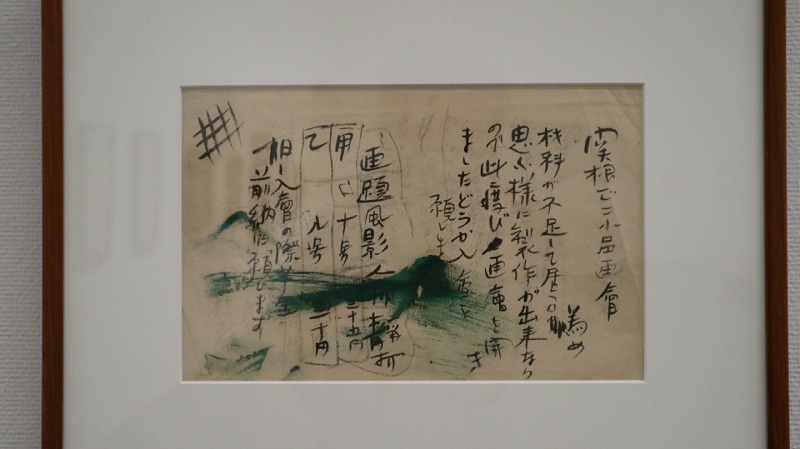 関根正二小品画會
材料が不足して居る為め
思ふ様に製作が出来なら
の不此度び画會を開き
ましたどうか入會を
願します
画題風影人物
甲 十号 三十五円
乙 八号 二十円
但し入會の際
前納に願します